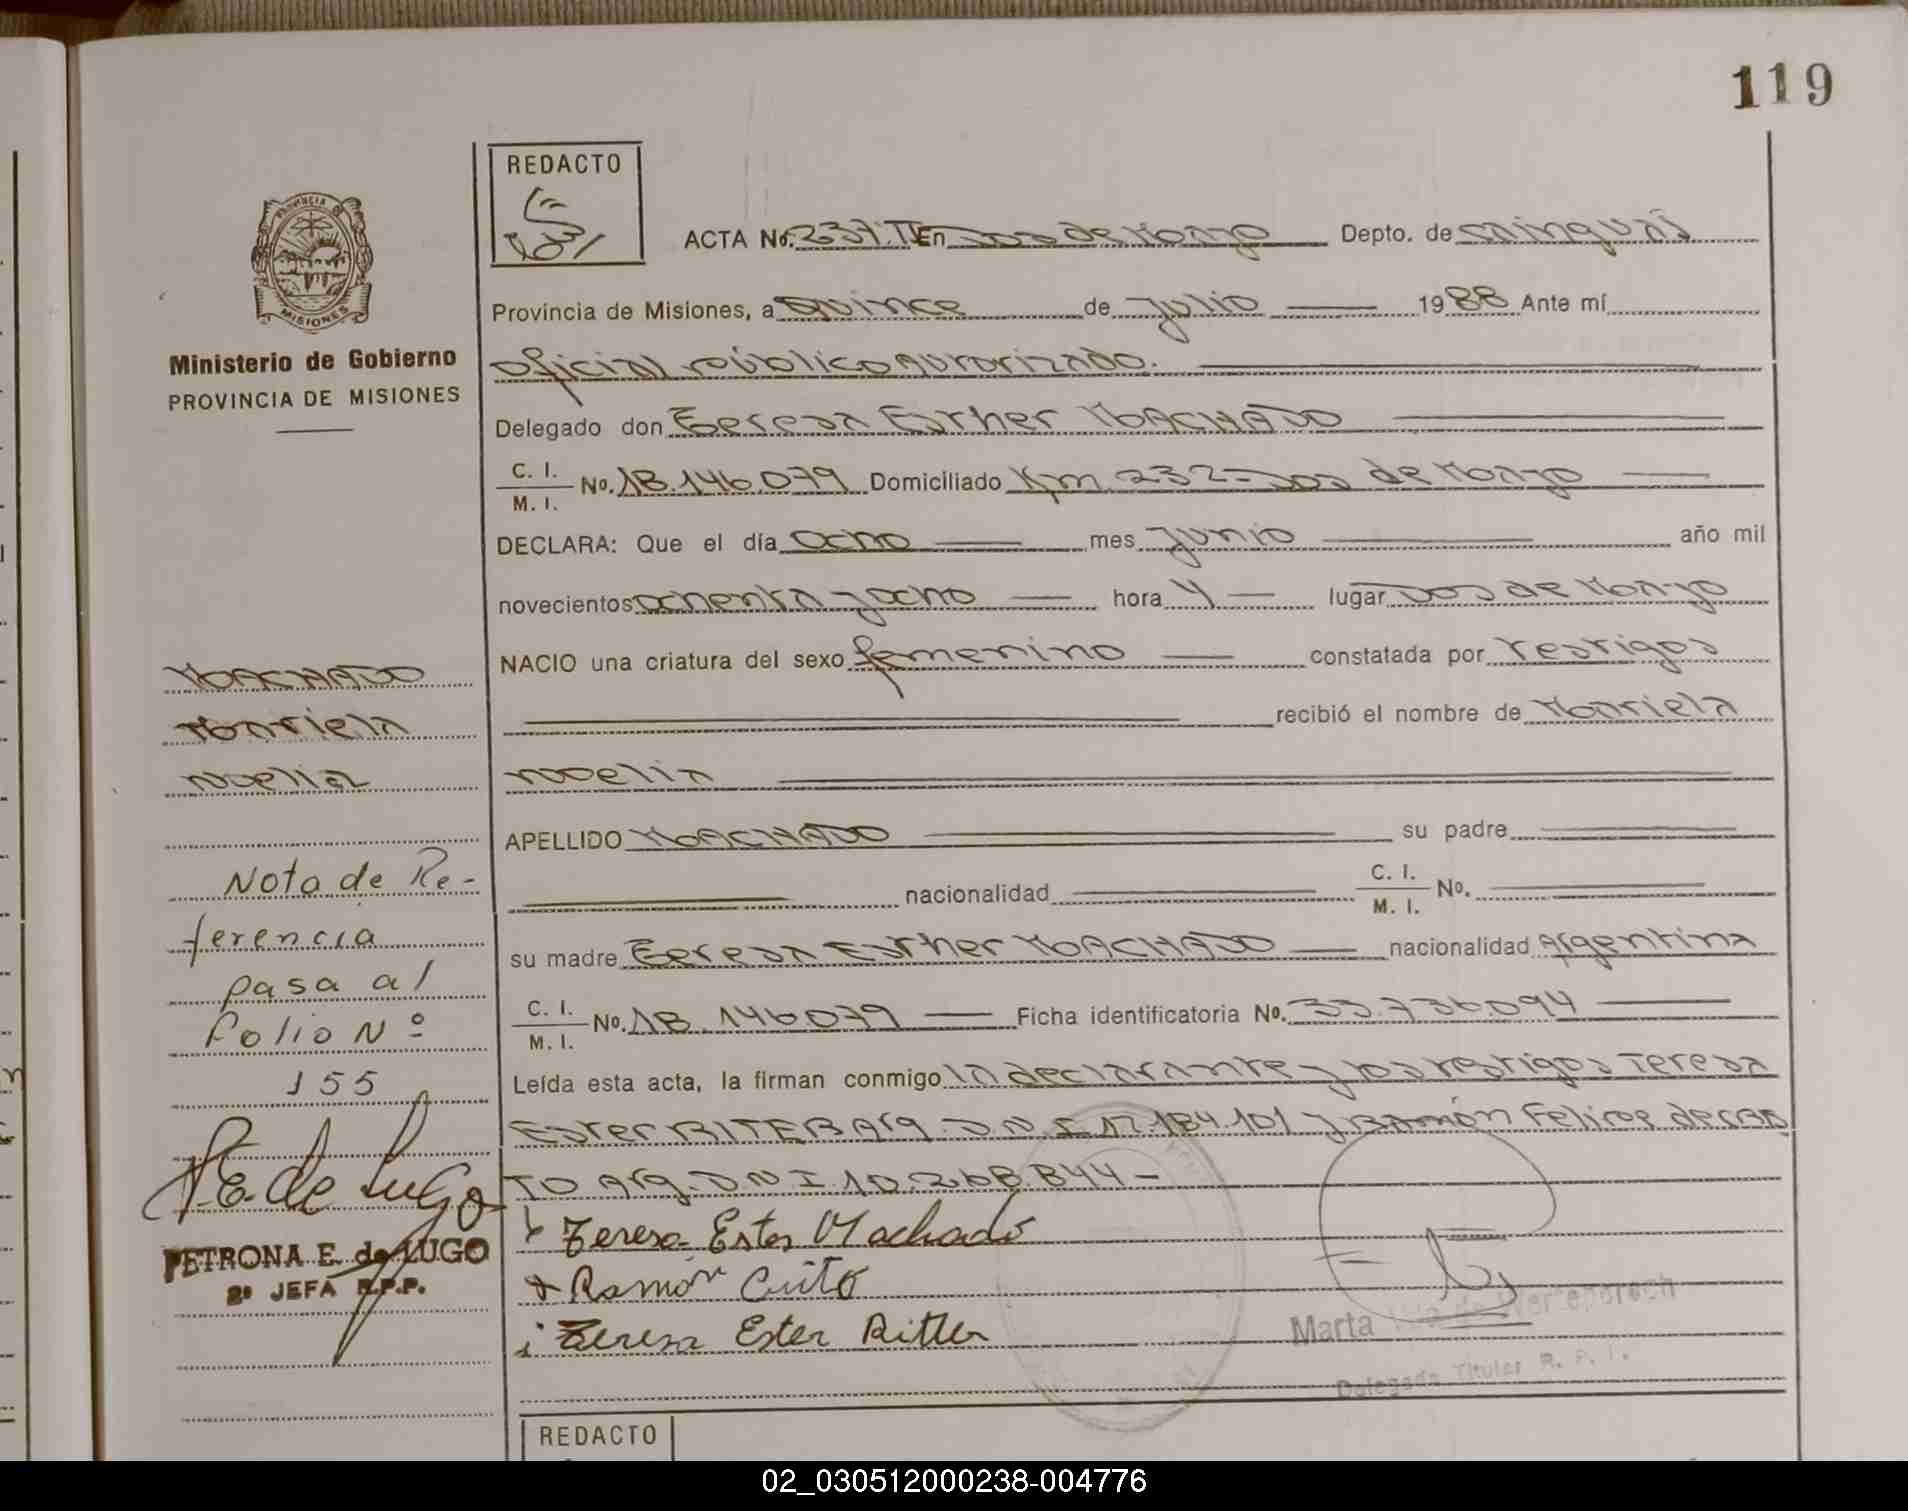 119
REDACTO
ACTA No. 237.T En Dos de Mayo Depto. de Cainguás
Provincia de Misiones, a Quince de Julio 1988 Ante mí
oficial público autorizado.
Delegado don Teresa Esther MACHADO
C. I.
M. I. No. 18.146.079 Domiciliado Km 232-Dos de Mayo
DECLARA: Que el día ocho mes Junio año mil
novecientos ochenta y ocho hora 4 lugar Dos de Mayo
NACIO una criatura del sexo femenino constatada por testigos
recibió el nombre de Mariela
Noelia
APELLIDO MACHADO su padre
nacionalidad C. I.
M. I. No.
su madre Teresa Esther MACHADO nacionalidad Argentina
C. I.
M. I. No. 18.146079 Ficha identificatoria No. 33.736.094
Leída esta acta, la firman conmigo la declarante y los testigos Teresa
Ester Arg. D.N.I 17.184.101 y Ramón Felipe
TO Arg. D N I 10.268.844-
Teresa Ester Machado
Ramón
Teresa Ester Ritter
PROVINCIA DE
MISIONES
Ministerio de Gobierno
PROVINCIA DE MISIONES
MACHADO
Mariela
Noelia
Nota de Re-
ferencia
pasa al
folio Nº
155
P.E. de Lugo
PETRONA E. de LUGO
2º JEFA R.P.P.
Marta
Delegada Titular R. P. P.
REDACTO
02_030512000238-004776